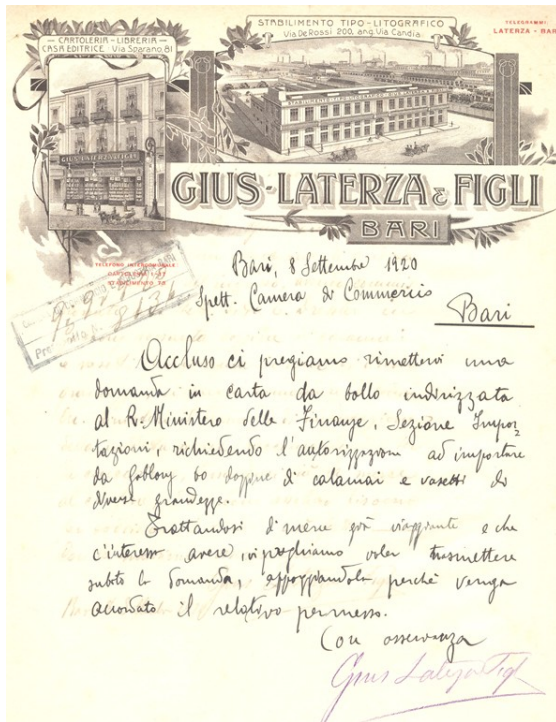 CARTOLERIA - LIBRERIA
CASA EDITRICE · Via Sparano, 81
STABILIMENTO TIPO-LITOGRAFICO
Via De Rossi 200, ang. Via Candia
TELEGRAMMI:
LATERZA - BARI
STABILIMENTO TIPO-LITOGRAFICO - GIUS. LATERZA & FIGLI
GIUS. LATERZA & FIGLI
GIUS. LATERZA & FIGLI
BARI
TELEFONO INTERCOMUNALE
CARTOLERIA
STABILIMENTO
Bari, 8 Settembre 1920
Spett. Camera di Commercio
Bari
Accluso ci pregiamo rimettervi una
domanda in carta da bollo indirizzata
al R. Ministero delle Finanze, Sezione Impor
tazioni, richiedendo l'autorizzazione ad importare
da Gablonz 60 dozzine di calamai e vasetti di
diverse grandezze.
Trattandosi di merce già viaggiante e che
c'interessa avere, vi preghiamo voler trasmettere
subito la domanda, appoggiandola perchè venga
accordato il relativo permesso.
Con osservanza
Gius Laterza Figli